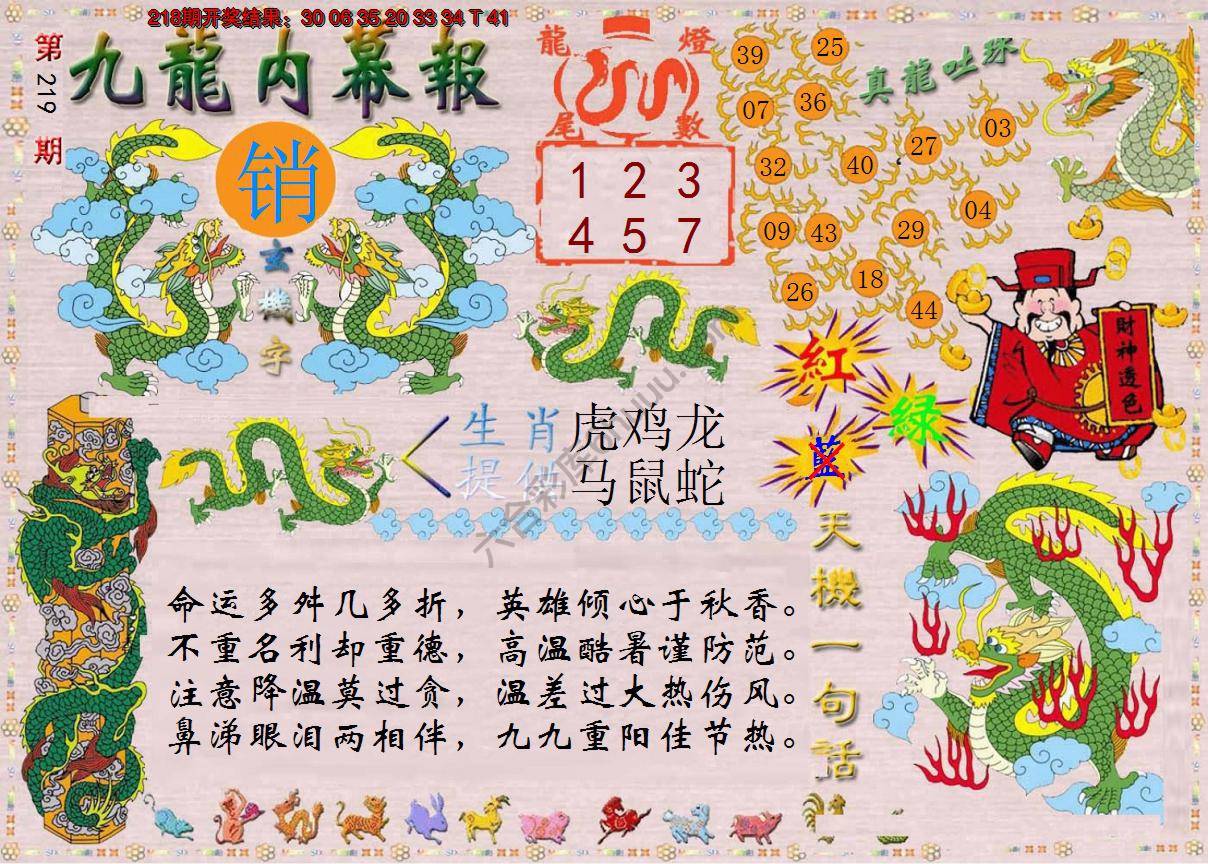 218期开奖结果：30 06 35 20 33 34 T 41
第219期
九龍内幕報
销
玄機字
龍燈尾數
1 2 3
4 5 7
真龍吐珠
39 25
07 36
27 03
32 40
04
09 43 29
26 18
44
財神透色
紅
綠
藍
生肖 虎鸡龙
提供 马鼠蛇
天機一句話
命运多舛几多折，英雄倾心于秋香。
不重名利却重德，高温酷暑谨防范。
注意降温莫过贪，温差过大热伤风。
鼻涕眼泪两相伴，九九重阳佳节热。